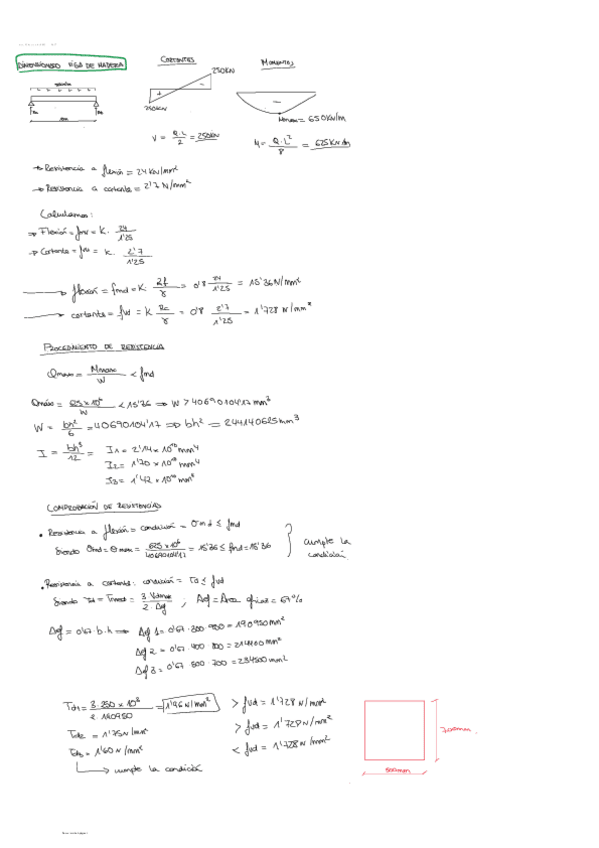 DIMENSIONADO VIGA DE MADERA
CORTANTES
MOMENTOS
250KN
+
-
250KN
-
Mmax = 650KN/m
V = Q·L / 2 = 250KN
M = Q·L² / 8 = 625KN·m
→ Resistencia a flexión = 24 KN/mm²
→ Resistencia a cortante = 2'7 N/mm²
Calculamos:
⇒ Flexión = fmd = K · 24 / 1'25
⇒ Cortante = fvd = K · 2'7 / 1'25
→ flexión = fmd = K · Rf / γ = 0'8 24 / 1'25 = 15'36 N/mm²
→ cortante = fvd = K Rc / γ = 0'8 2'7 / 1'25 = 1'728 N/mm²
PROCEDIMIENTO DE RESISTENCIA
σmax = Mmax / W < fmd
σmáx = 625×10⁶ / W < 15'36 ⇒ W > 40690104'17 mm³
W = bh² / 6 = 40690104'17 ⇒ bh² = 244140625 mm³
I = bh³ / 12 = I1 = 2'14×10¹⁰ mm⁴
I2 = 1'70×10¹⁰ mm⁴
I3 = 1'42×10¹⁰ mm⁴
COMPROBACIÓN DE RESISTENCIAS
• Resistencia a flexión = condición = σmd ≤ fmd
Siendo σmd = σmax = 625×10⁶ / 40690104'17 = 15'36 ≤ fmd = 15'36
cumple la condición
• Resistencia a cortante: condición = τd ≤ fvd
Siendo τd = τmax = 3·Vmax / 2·Aef ; Aef = Área eficaz = 67%
Aef = 0'67·b·h ⇒ Aef 1 = 0'67·300·950 = 190950 mm²
Aef 2 = 0'67·400·800 = 214400 mm²
Aef 3 = 0'67·500·700 = 234500 mm²
τd1 = 3·250×10³ / 2·190950 = 1'96 N/mm² > fvd = 1'728 N/mm²
τd2 = 1'75 N/mm² > fvd = 1'728 N/mm²
τd3 = 1'60 N/mm² < fvd = 1'728 N/mm²
→ cumple la condición
700mm
500mm